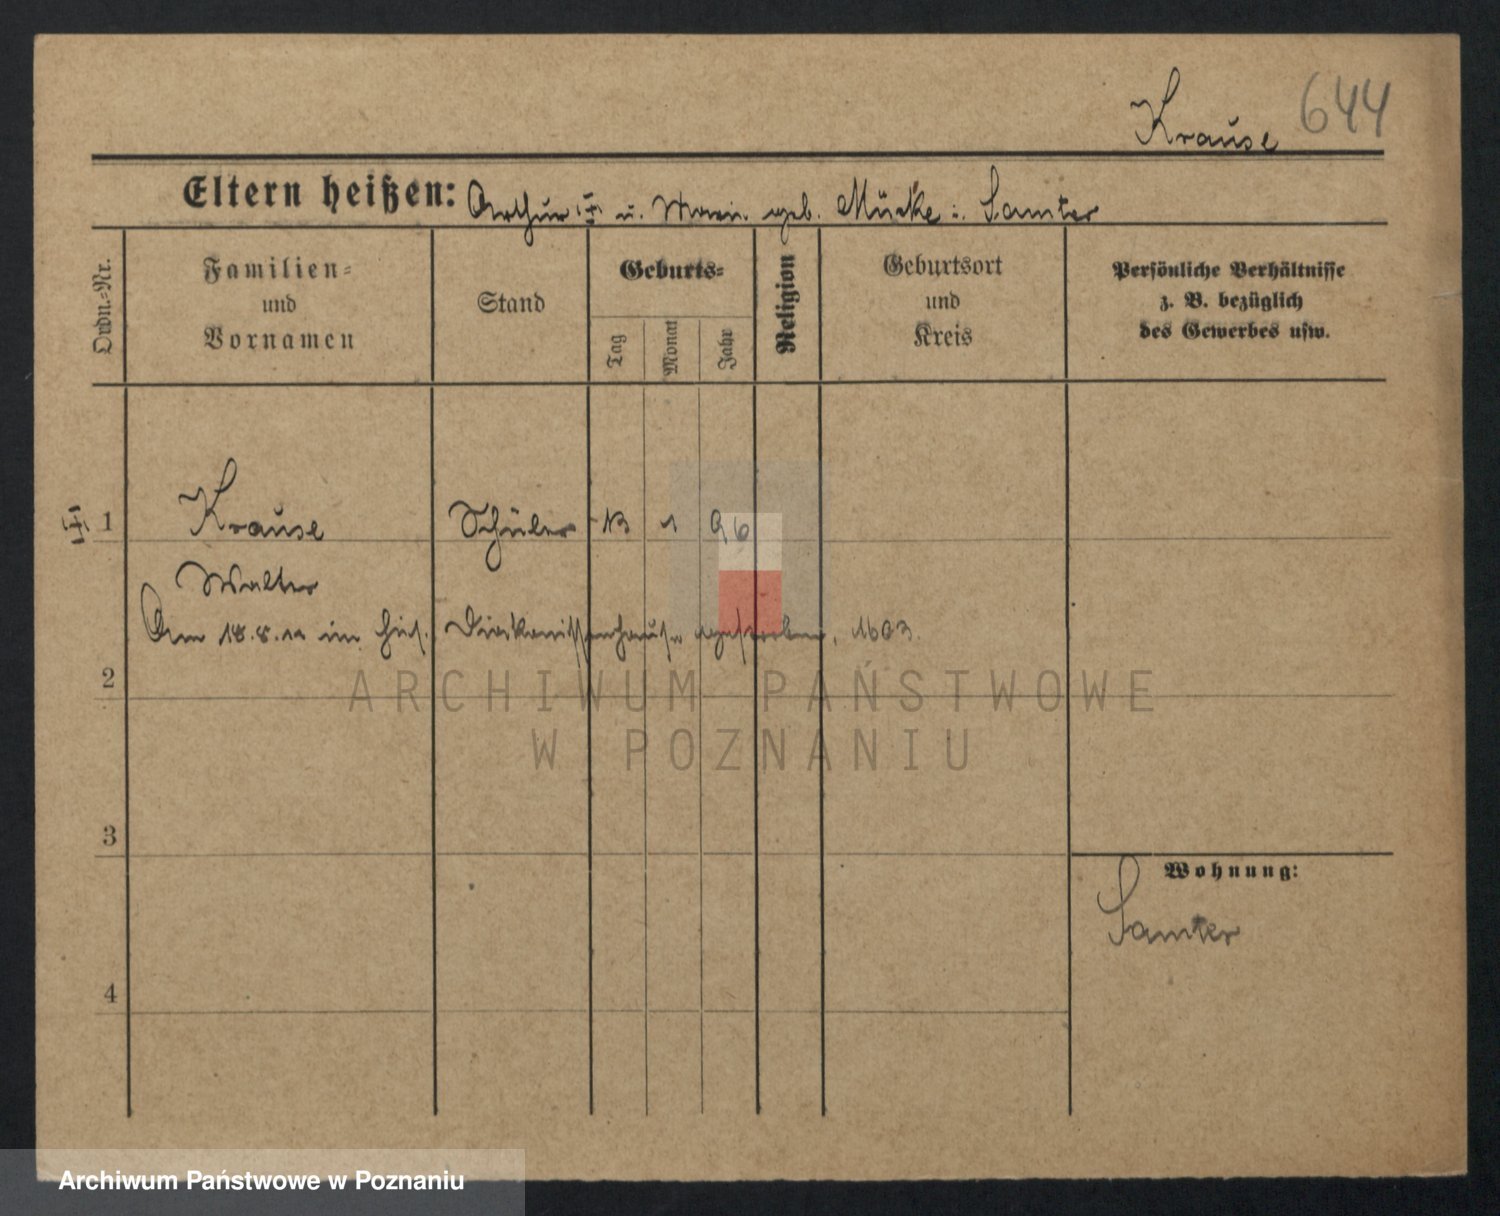 Krause 644
Eltern heißen: Arthur u. Marie geb. Mücke i. Samter
Ordn.=Nr.
Familien=
und
Vornamen
Stand
Geburts=
Tag
Monat
Jahr
Religion
Geburtsort
und
Kreis
Persönliche Verhältnisse
z. B. bezüglich
des Gewerbes usw.
1 Krause Schüler 13 1 96
Walter
Am 18.8.11 im hies. Diakonissenhause gestorben, 1603.
2
ARCHIWUM PAŃSTWOWE
W POZNANIU
3
Wohnung:
Samter
4
Archiwum Państwowe w Poznaniu